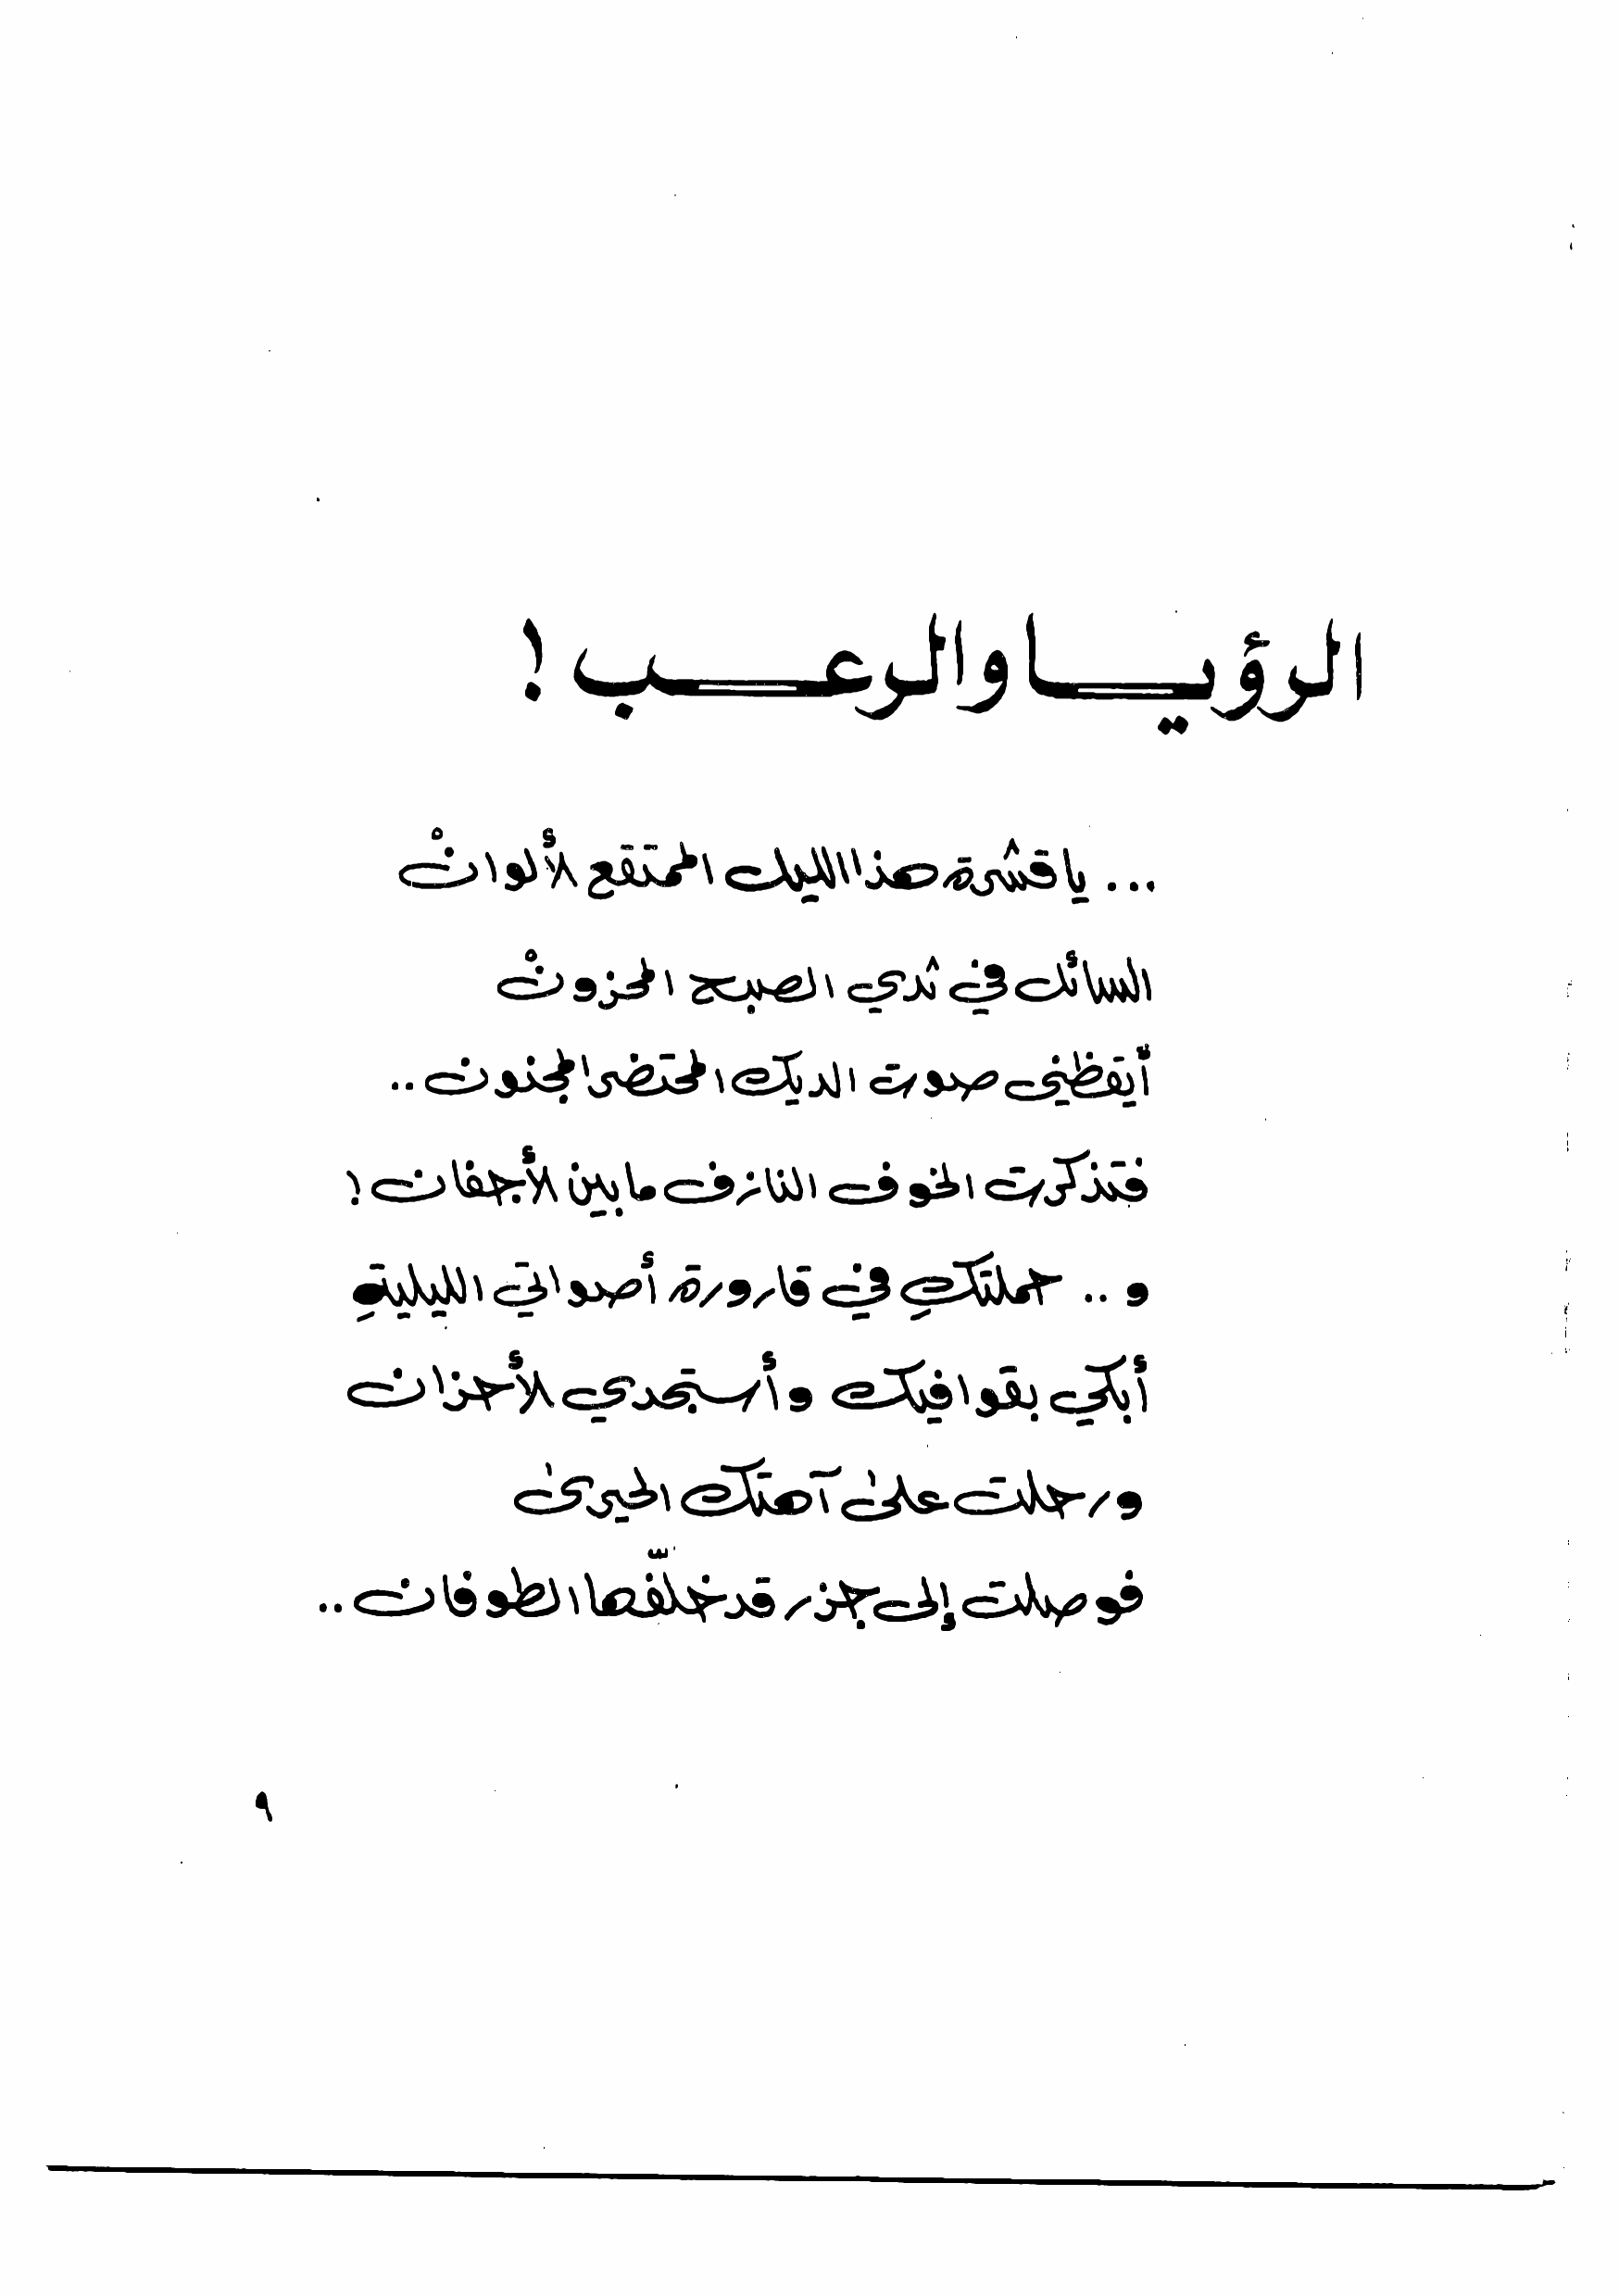 الرؤيا والرعب !
... يا قشرة هذا الليل الممتقع الألوانْ
السائل في ثدي الصبح المحزونْ
أيقظني صوت الديك المحتضر المجنون ..
فتذكرت الخوف النازف ما بين الأجفان !
و .. حملتكِ في قارورة أصواتي الليليةِ
أبكي بقوافيك وأستجدي الأحزان
ورحلت على آهتك الحيرى
فوصلت إلى جزر قد خلّفها الطوفان ..
٩